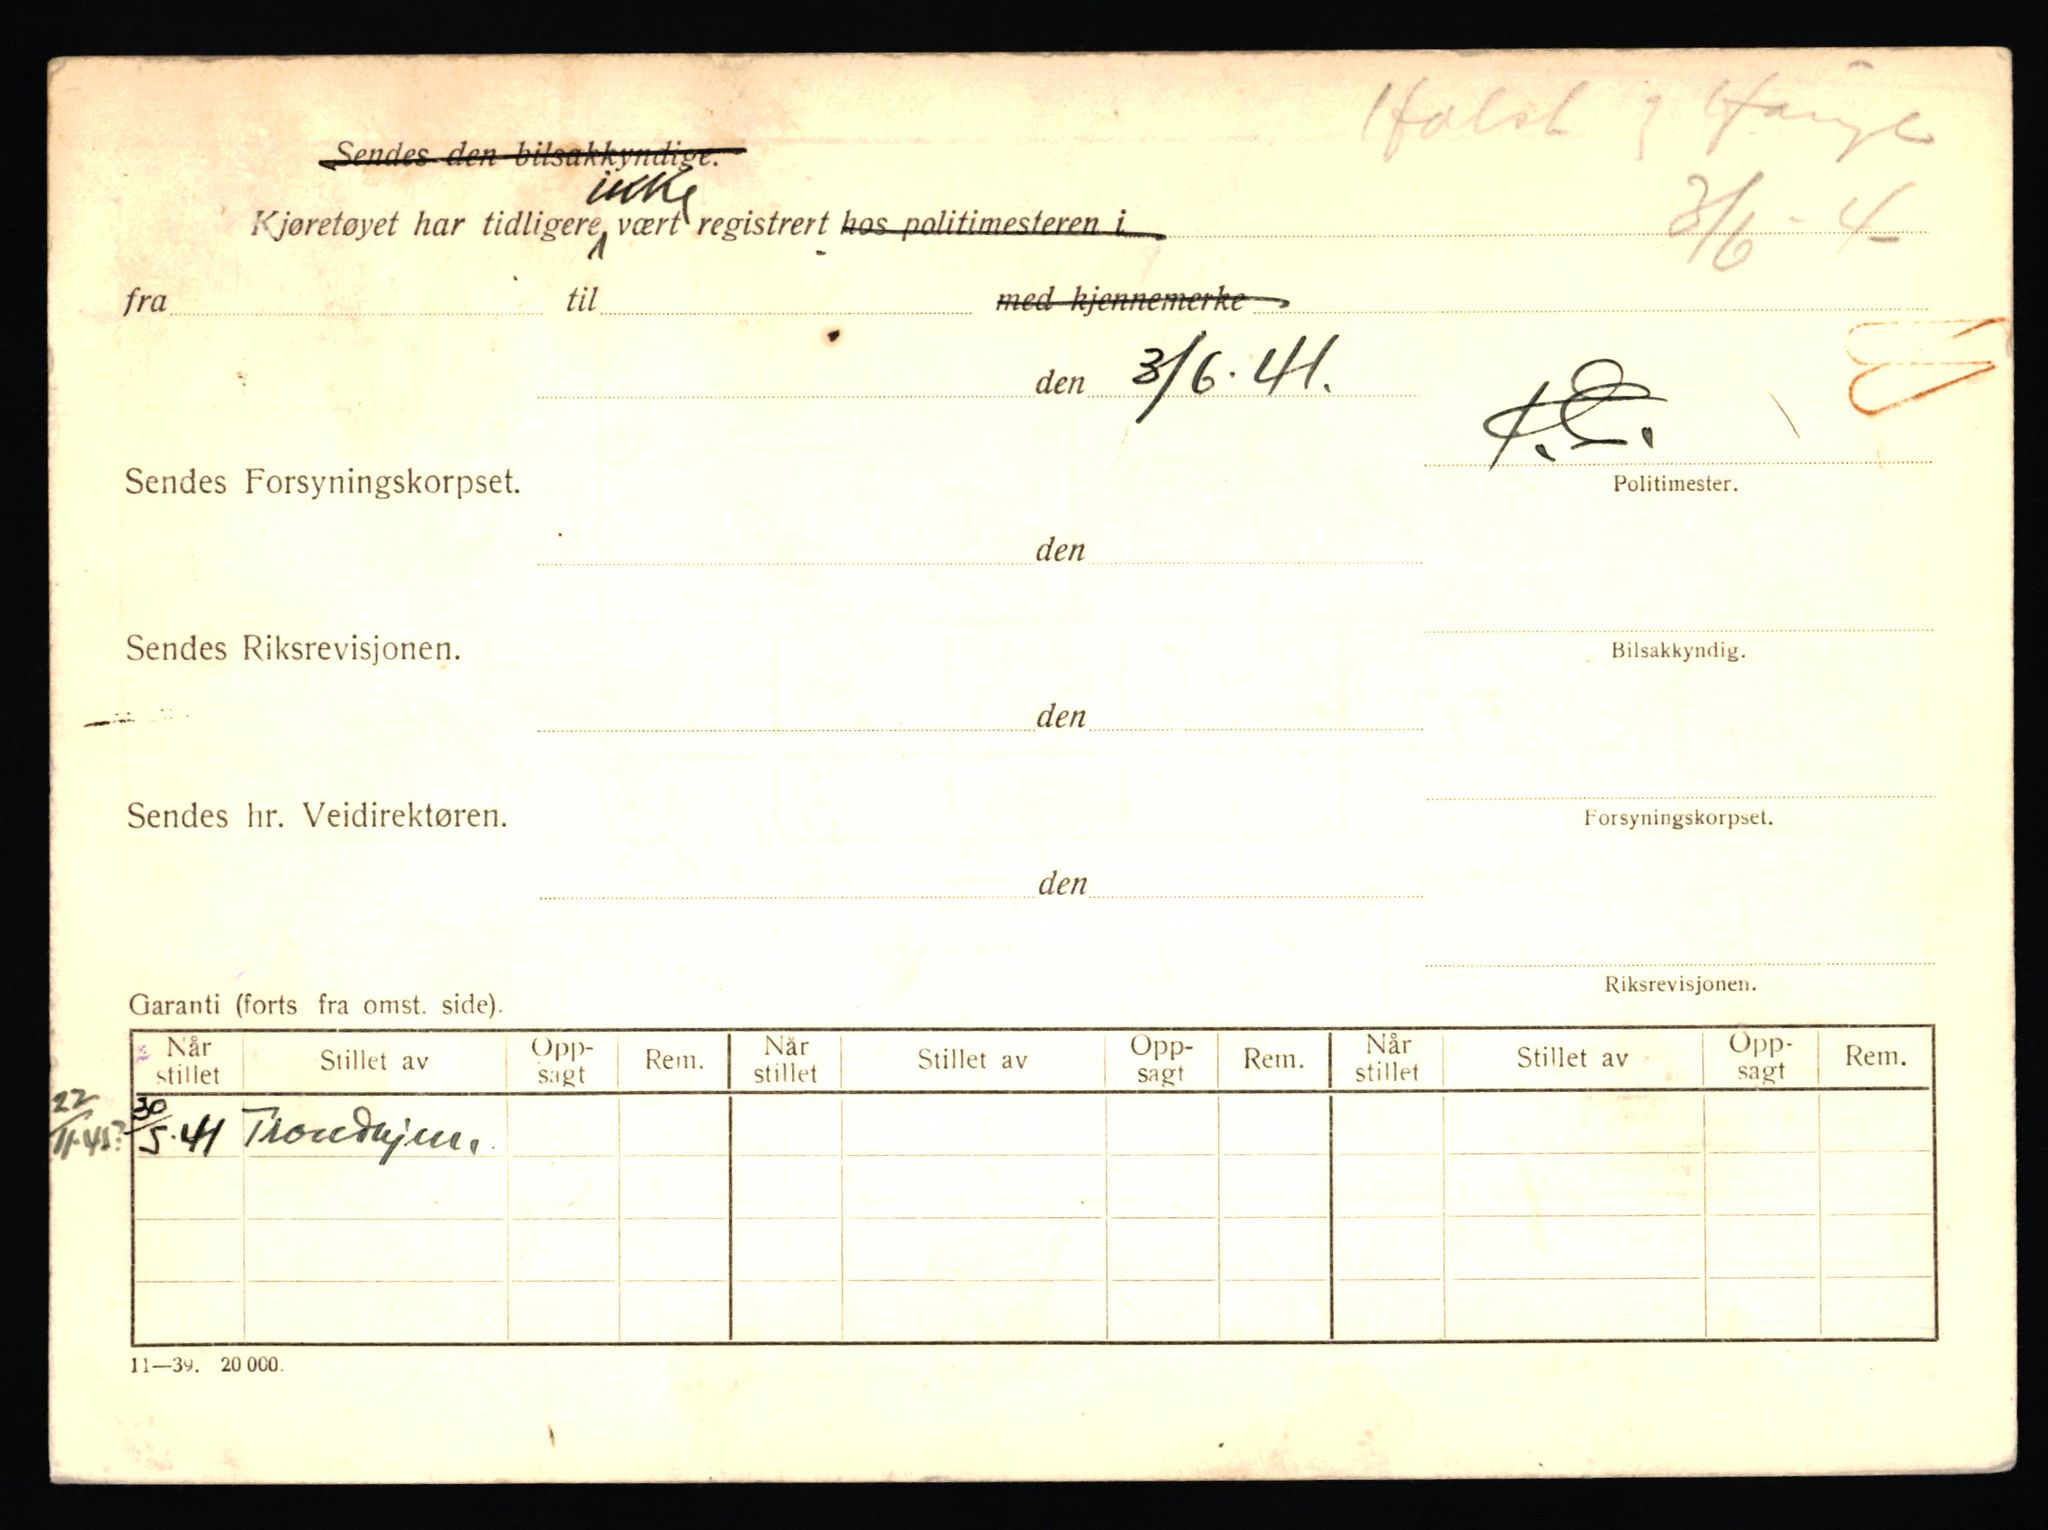 Holst & Hauge
3/6 - 4
Sendes den bilsakkyndige.
ikke
Kjøretøyet har tidligere vært registrert hos politimesteren i
fra til med kjennemerke
den 3/6. 41.
Sendes Forsyningskorpset.
Politimester.
den
Sendes Riksrevisjonen.
Bilsakkyndig.
den
Sendes hr. Veidirektøren.
Forsyningskorpset.
den
Riksrevisjonen.
Garanti (forts fra omst. side).
Når stillet Stillet av Opp-sagt Rem. Når stillet Stillet av Opp-sagt Rem. Når stillet Stillet av Opp-sagt Rem.
22/11.45? 30/5.41 Trondhjem.
11—39. 20 000.